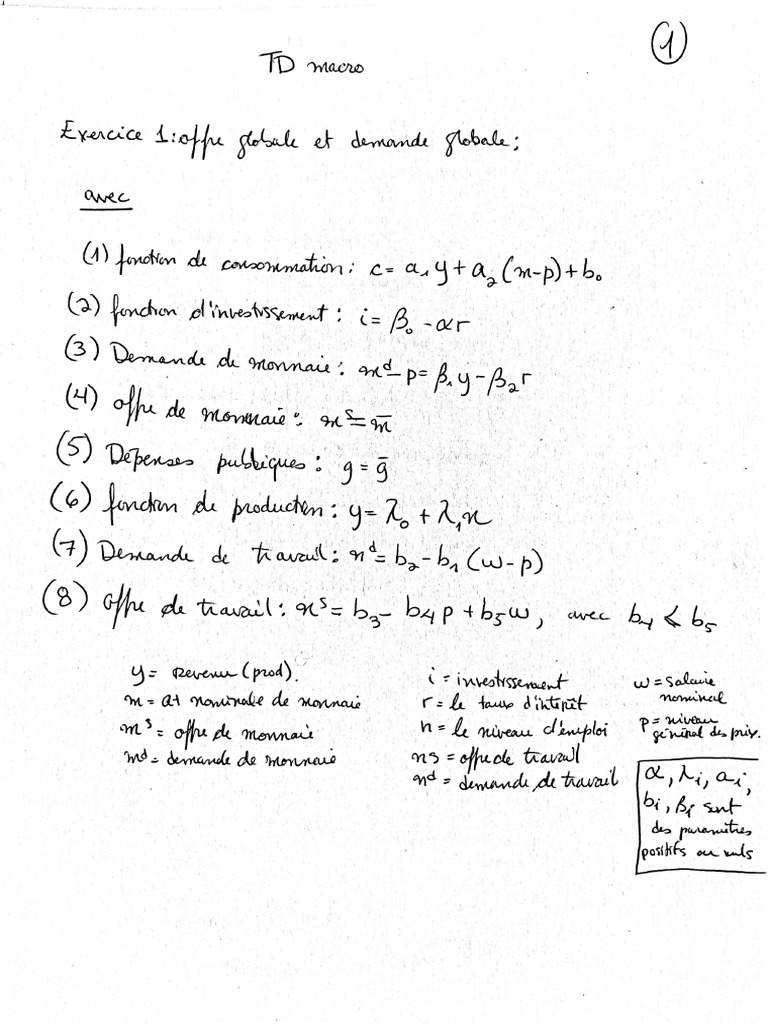 ①
TD macro
Exercice 1: offre globale et demande globale;
avec
(1) fonction de consommation: c = a₁y + a₂(m-p) + b₀
(2) fonction d'investissement: i = β₀ - αr
(3) Demande de monnaie: mᵈ - p = β₁y - β₂r
(4) offre de monnaie: mˢ = m̄
(5) Dépenses publiques: g = ḡ
(6) fonction de production: y = λ₀ + λ₁n
(7) Demande de travail: nᵈ = b₂ - b₁(w-p)
(8) offre de travail: nˢ = b₃ - b₄p + b₅w, avec b₄ ⩽ b₅
y = revenu (prod).
m = at nominale de monnaie
mˢ = offre de monnaie
mᵈ = demande de monnaie
i = investissement
r = le taux d'intérêt
n = le niveau d'emploi
ns = offre de travail
nᵈ = demande de travail
w = salaire
nominal
p = niveau
général des prix.
α, λi, ai,
bi, βi sont
des paramètres
positifs ou nuls